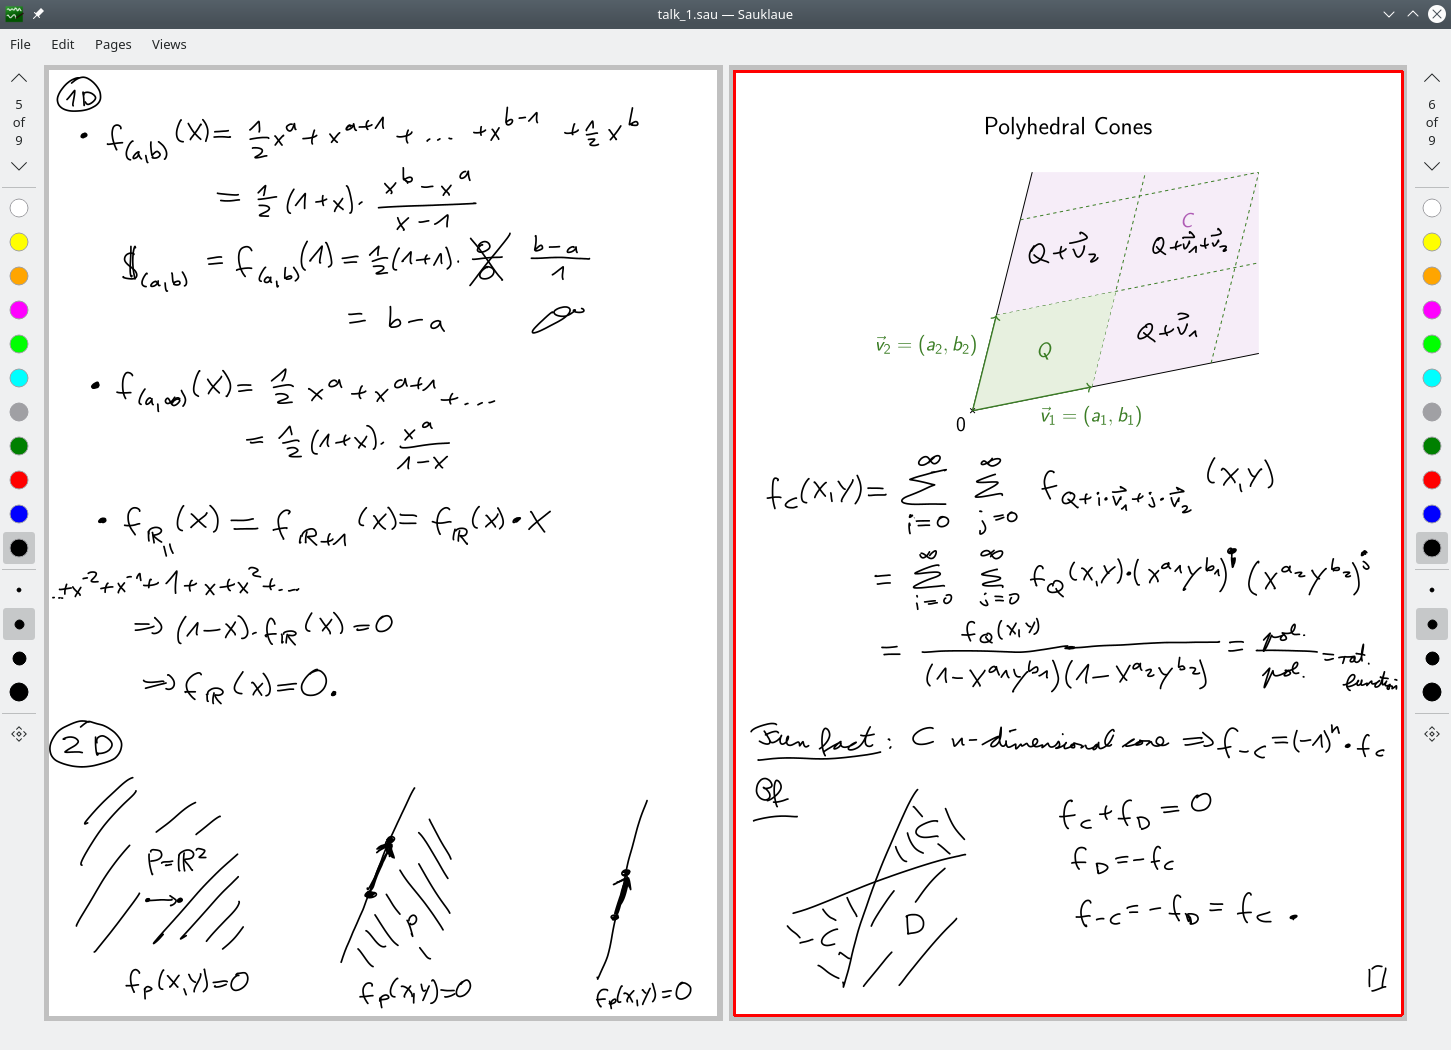 talk_1.sau — Sauklaue
File Edit Pages Views
5
of
9
1D
• f_(a,b) (X) = 1/2 x^a + x^(a+1) + ... + x^(b-1) + 1/2 x^b
= 1/2 (1+x) · (x^b - x^a)/(x-1)
$_(a,b) = f_(a,b) (1) = 1/2 (1+1) · 0/0 (b-a)/1
= b-a
• f_(a,∞) (X) = 1/2 x^a + x^(a+1) + ...
= 1/2 (1+x) · x^a/(1-x)
• f_ℝ (X) = f_ℝ+1 (X) = f_ℝ (X) • X
... + x^-2 + x^-1 + 1 + x + x^2 + ...
⇒ (1-X) · f_ℝ (X) = 0
⇒ f_ℝ (X) = 0.
2D
P=ℝ²
P
f_P (X,Y)=0
f_P (X,Y)=0
f_P (X,Y)=0
6
of
9
Polyhedral Cones
C
Q+v⃗2
Q+v⃗1+v⃗2
Q+v⃗1
v⃗2 = (a2, b2)
Q
v⃗1 = (a1, b1)
0
f_C (X,Y) = Σ_(i=0)^∞ Σ_(j=0)^∞ f_(Q+i·v⃗1+j·v⃗2) (X,Y)
= Σ_(i=0)^∞ Σ_(j=0)^∞ f_Q (X,Y) · (X^a1 Y^b1)^i (X^a2 Y^b2)^j
= f_Q (X,Y) / (1-X^a1 Y^b1)(1-X^a2 Y^b2) = pol./pol. = rat. function
Fun fact: C n-dimensional cone ⇒ f_-C = (-1)^n · f_C
Pf
C
-C
D
f_C + f_D = 0
f_D = -f_C
f_-C = -f_D = f_C .
□